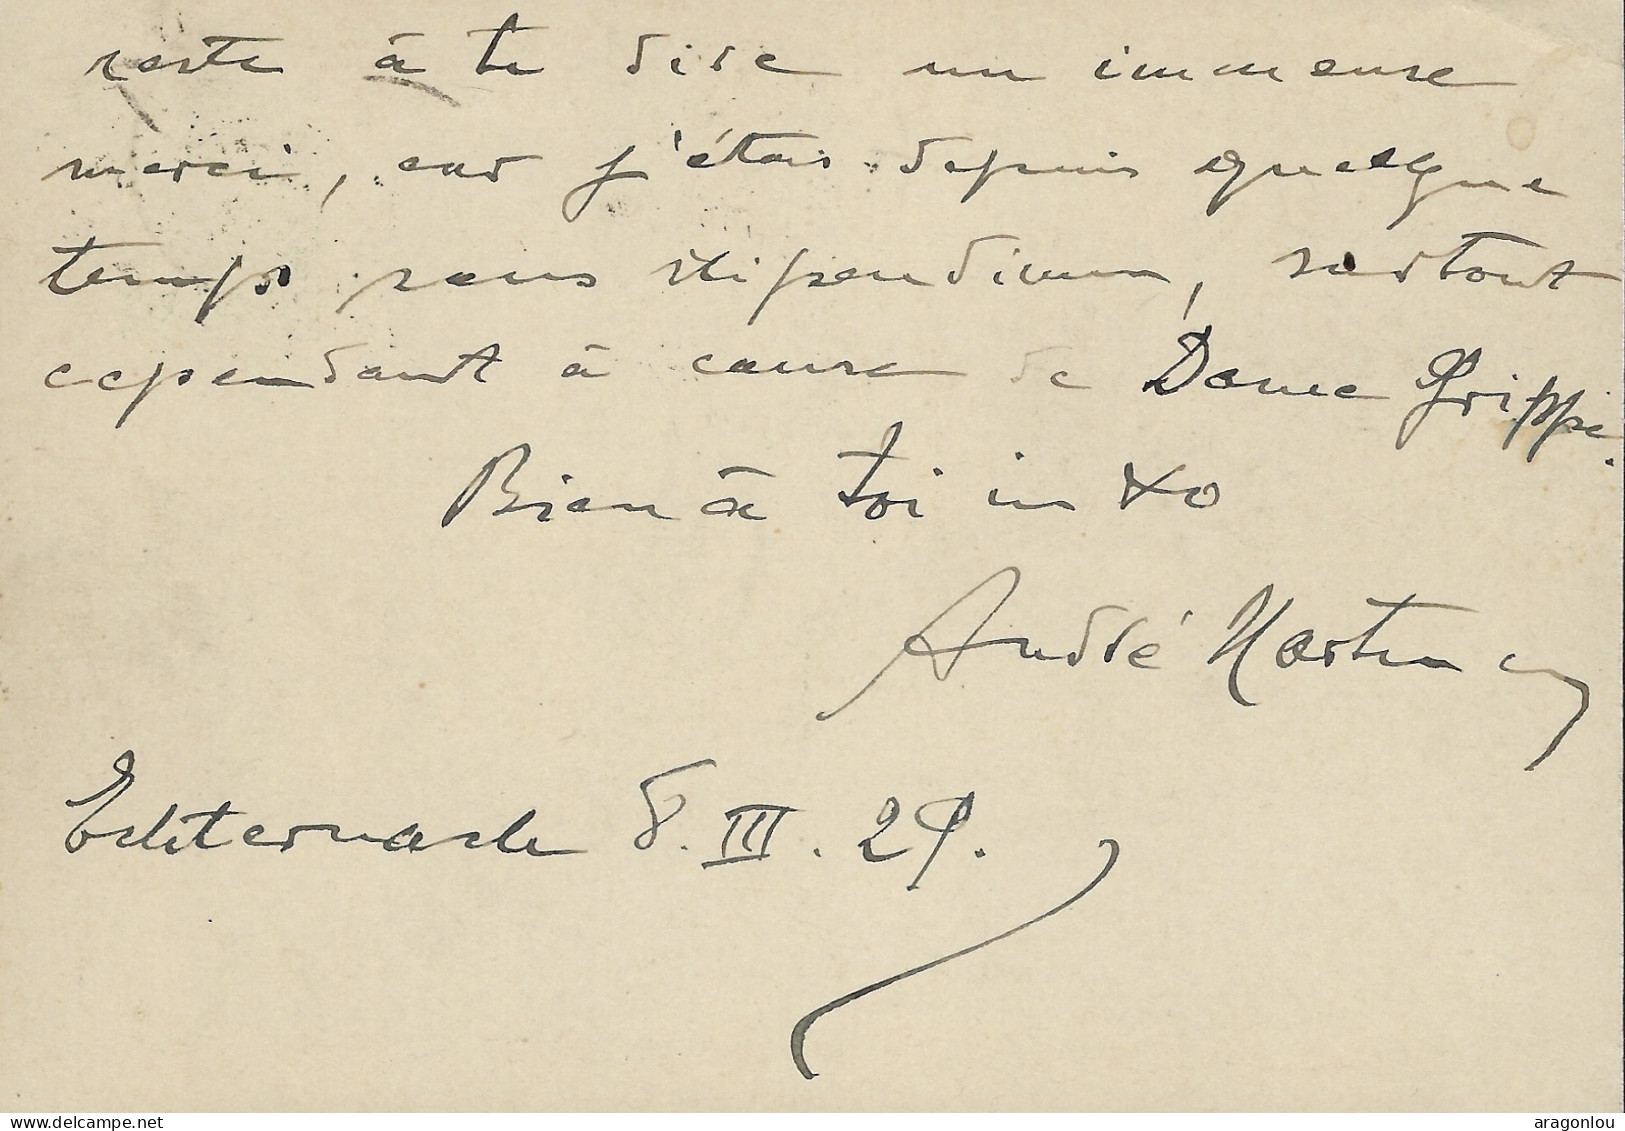 reste à te dire un immense
merci, car j'étais depuis quelque
temps sans stipendium, surtout
cependant à cause de Dame Grippe.
Bien à toi in Xo
André
Echternach 8. III. 29.
aragonlou